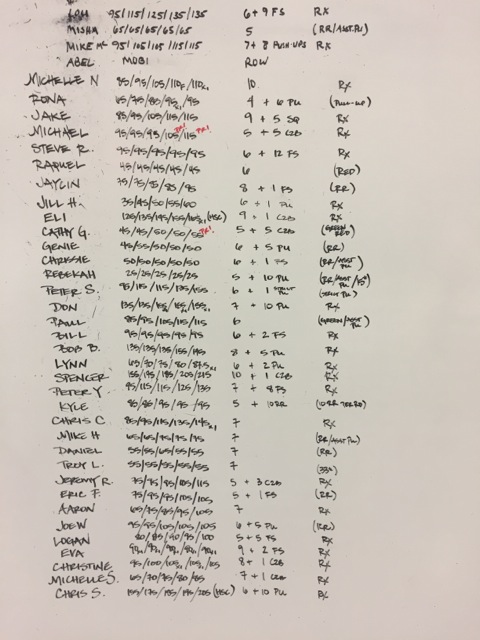 95/115/125/135/135 6+9 FS RX
MISHA 65/65/65/65/65 5 (RR/ASST.PU)
MIKE Mc 95/105/105/115/115 7+8 PUSH-UPS RX
ABEL MOBI ROW
MICHELLE N 85/95/105/110x/110x1 10 Rx
RONA 65/75/80/95x1/95 4 + 6 PU (PULL-UP)
JAKE 85/95/105/115/115 9 + 5 SQ Rx
MICHAEL 95/95/95/105/115 PR! PR! 5 + 5 C2B Rx
STEVE R. 95/95/95/95/95 6 + 12 FS Rx
RAQUEL 45/45/45/45/45 6 (RED)
JAYLIN 75/75/85/85/95 8 + 1 FS (RR)
JILL H. 35/45/50/55/60 6 + 1 PU Rx
ELI (HSC) 9 + 1 C2B Rx
CATHY G. 45/45/50/50/55 PR! 5 + 5 C2B (GREEN RED)
GENIE 45/55/50/50/50 6 + 5 PU (RR)
CHRISSIE 50/50/50/50/50 6 + 1 FS (RR/ASST PU)
REBEKAH 25/25/25/25/25 5 + 10 PU (RR/ASST PU/45#)
PETER S. 95/115/115/135/155 6 + 1 STRICT PU (STRICT PU)
DON 7 + 10 PU Rx
PAUL 85/95/105/115/115 6 (GREEN/ASST PU)
BILL 95/95/95/95/95 6 + 2 FS Rx
BOB B. 135/135/135/155/145 8 + 5 PU Rx
LYNN 6 + 2 PU Rx
SPENCER 155/195/195/205/215 10 + 1 C2B Rx
PETER Y 95/115/115/125/135 7 + 8 FS Rx
KYLE 80/85/95/95/95 5 + 10RR
CHRIS C. 85/95/115/135/145x1 7 Rx
MIKE H 65/65/75/75/75 7 (RR/ASST PU)
DANIEL 55/55/65/55/55 7 (RR)
TROY L. 55/55/55/55/55 7 (33#)
JEREMY R. 75/75/95/105/115 5 + 3 C2B Rx
ERIC F. 75/95/95/105/105 5 + 1 FS (RR)
AARON 65/75/85/95/105 7 Rx
JOE W 95/95/105/105/105 6 + 5 PU (RR)
LOGAN 80/85/90/95/100 5 + 5 FS Rx
EVA 9 + 2 FS Rx
CHRISTINE 8 + 1 C2B Rx
MICHELLE S. 65/70/75/80/85 7 + 1 C2B Rx
CHRIS S. 155/175/185/195/205 (HSC) 6 + 10 PU Rx